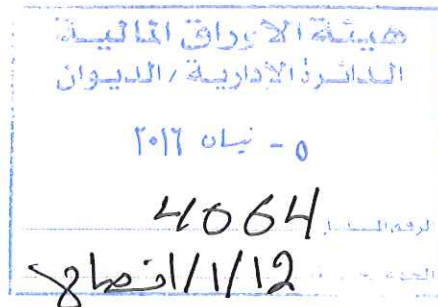 هيئة الاوراق المالية
الدائرة الادارية / الديوان
٥ - نيسان ٢٠١٦
الرقم المتسلسل 4064
افصاح/1/1/12